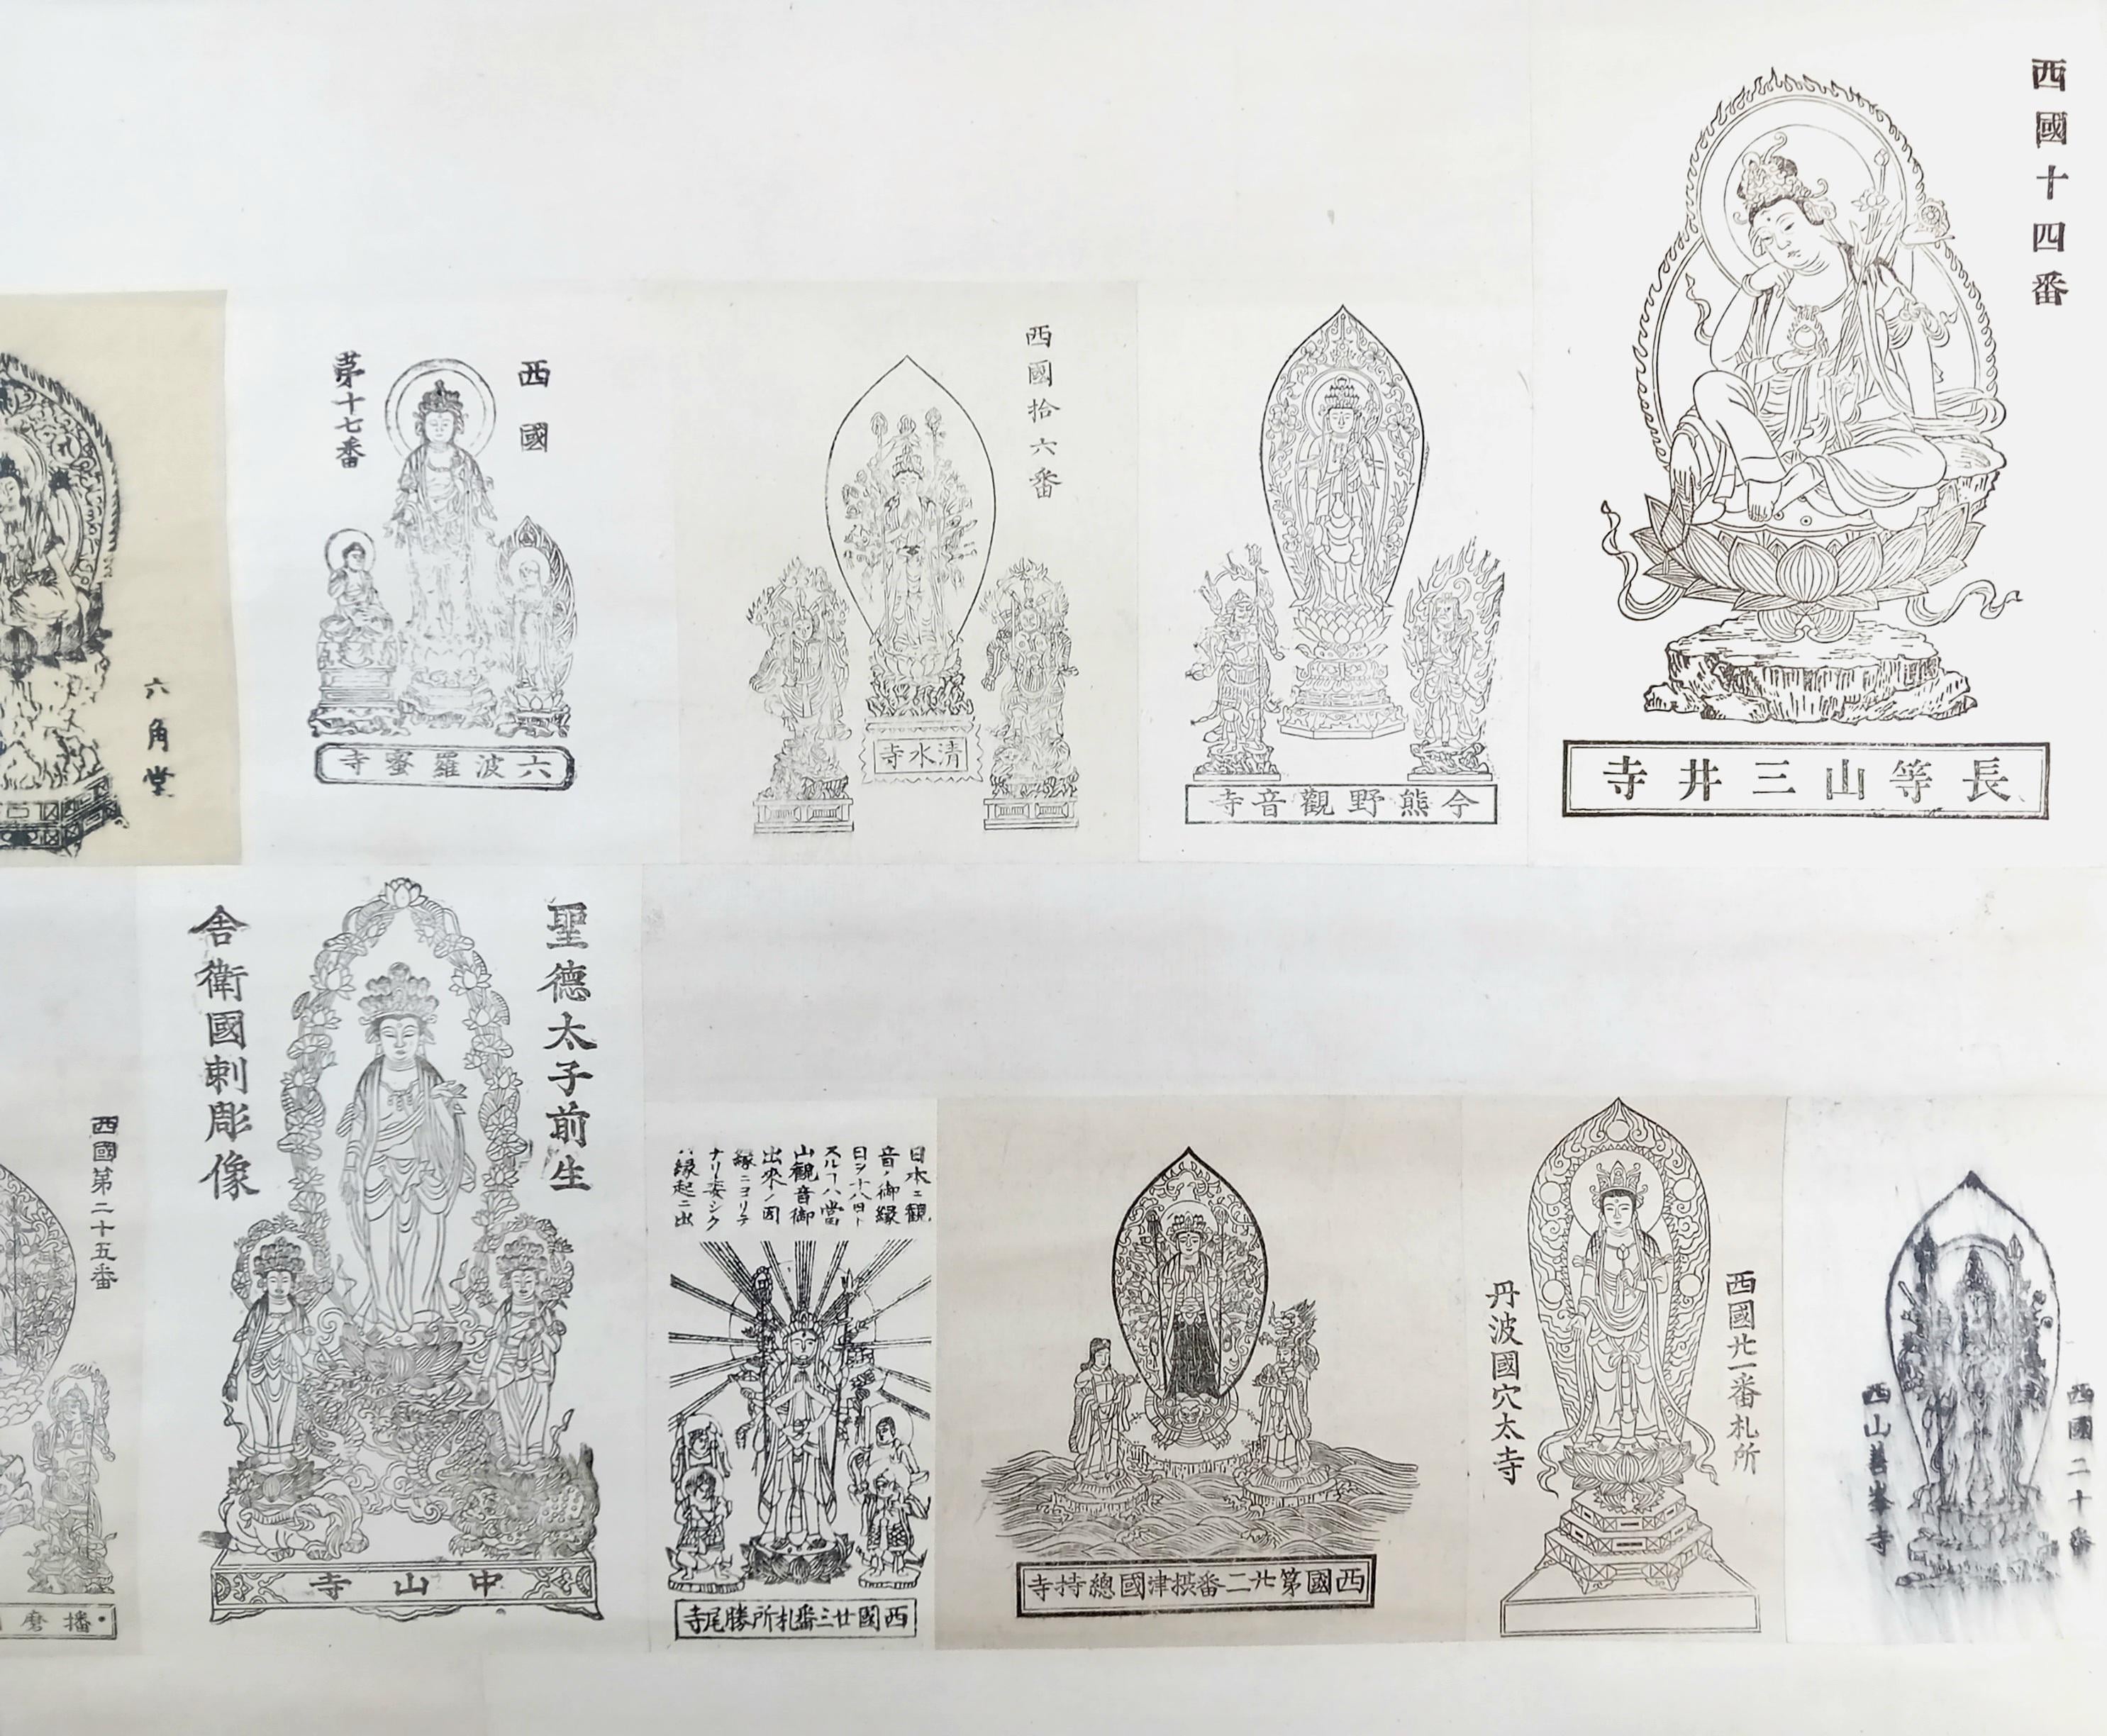 西國十四番
長等山三井寺
今熊野觀音寺
西國拾六番
清水寺
西國
第十七番
六波羅蜜寺
六角堂
西國二十番
西山善峯寺
西國廿一番札所
丹波國穴太寺
西國第廿二番摂津國總持寺
日本ニ観
音ノ御縁
日ヲ十八日ト
スルハ當
山観音御
出來ノ因
縁ニヨリテ
ナリ委シク
ハ縁起ニ出
西國廿三番札所勝尾寺
聖德太子前生
舎衛國刺彫像
中山寺
西國第二十五番
播磨